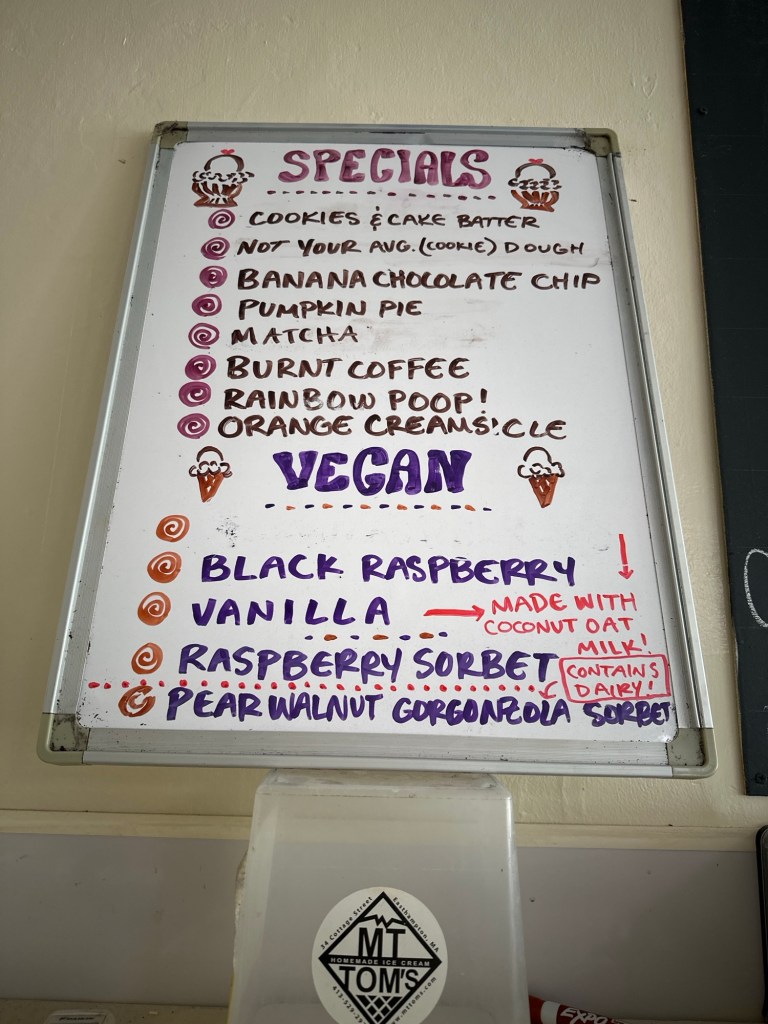 SPECIALS
COOKIES & CAKE BATTER
NOT YOUR AVG. (COOKIE) DOUGH
BANANA CHOCOLATE CHIP
PUMPKIN PIE
MATCHA
BURNT COFFEE
RAINBOW POOP!
ORANGE CREAMSICLE
VEGAN
BLACK RASPBERRY
VANILLA → MADE WITH
COCONUT OAT
MILK!
RASPBERRY SORBET
CONTAINS
DAIRY!
PEAR WALNUT GORGONZOLA SORBET
34 Cottage Street Easthampton, MA
MT
HOMEMADE ICE CREAM
TOM'S
www.mttoms.com
EXPO